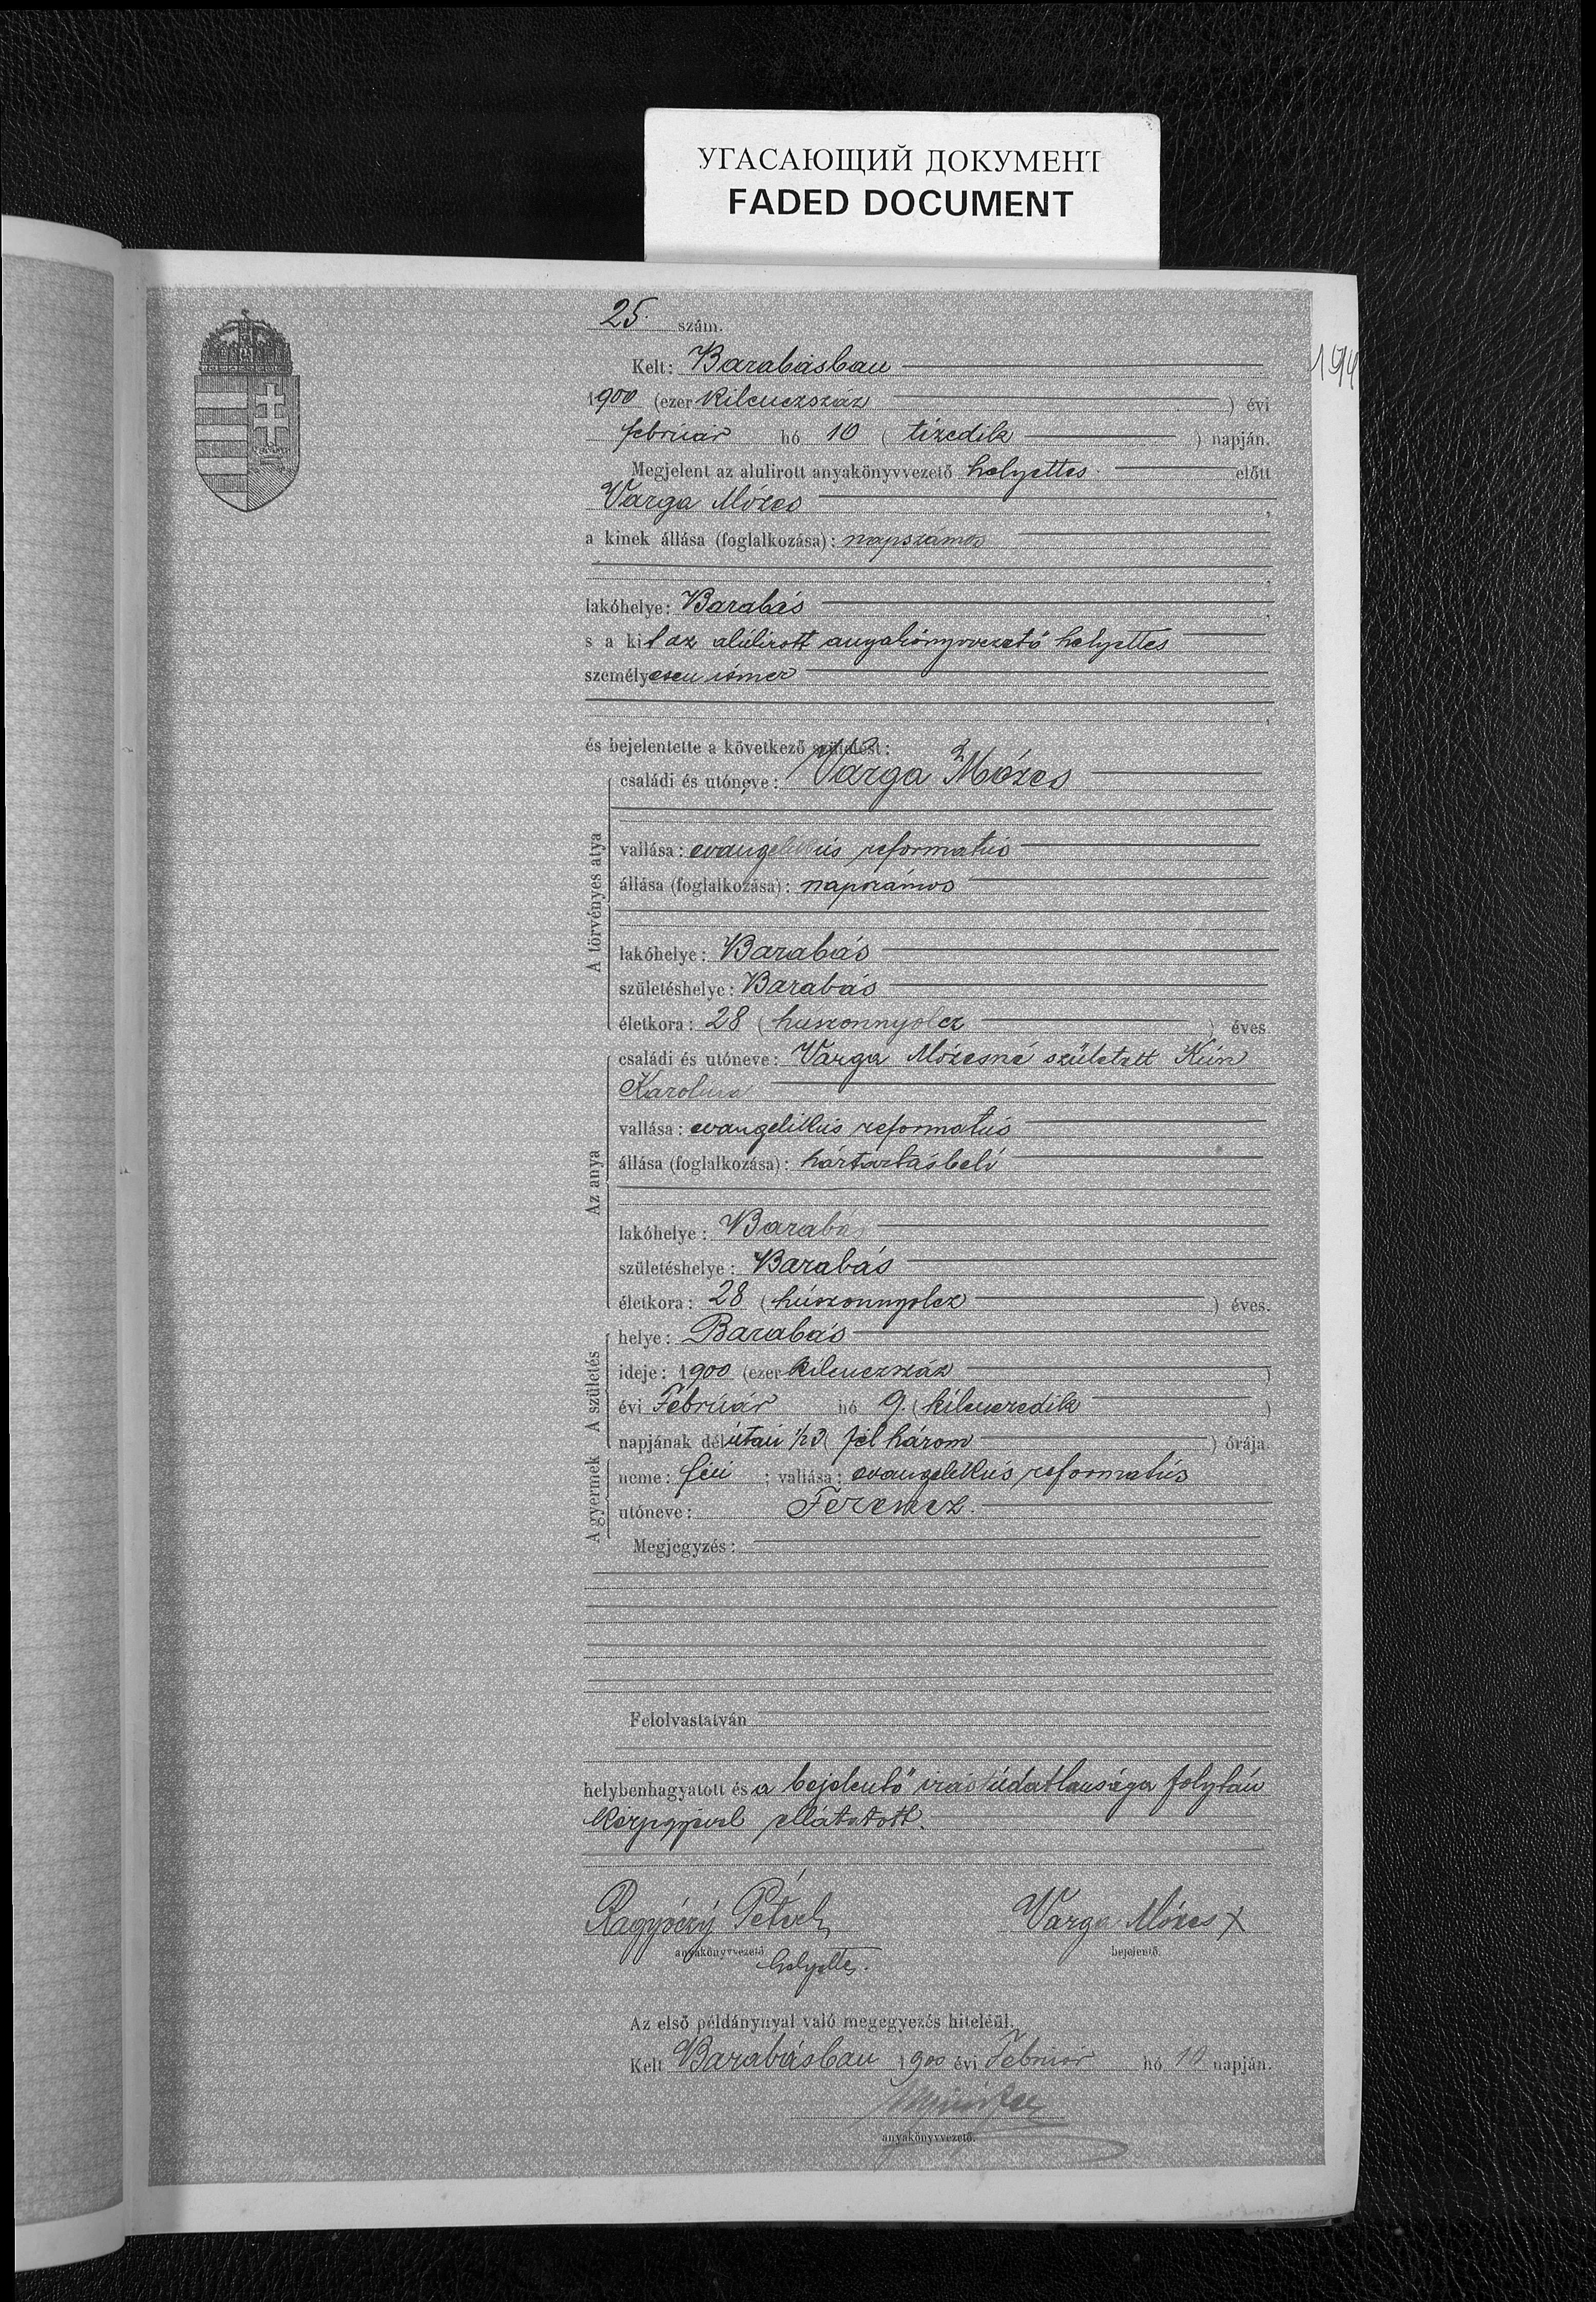 УГАСАЮЩИЙ ДОКУМЕНТ
FADED DOCUMENT
194
25. szám.
Kelt: Barabásban
1900 (ezer kilenczszáz ) évi
február hó 10 ( tizedik ) napján.
Megjelent az alulirott anyakönyvvezető helyettes előtt
Varga Mózes ,
a kinek állása (foglalkozása): napszámos
,
lakóhelye: Barabás ,
s a kit az alúlirott anyakönyvvezető helyettes
személyesen ismer
,
és bejelentette a következő születést:
A törvényes atya
családi és utóneve: Varga Mózes
vallása: evangelikús reformatús
állása (foglalkozása): napszámos
lakóhelye: Barabás
születéshelye: Barabás
életkora: 28 ( huszonnyolcz ) éves
Az anya
családi és utóneve: Varga Mózesné született Kún
Karolina
vallása: evangelikús reformatús
állása (foglalkozása): háztartásbeli
lakóhelye: Barabás
születéshelye: Barabás
életkora: 28 ( húszonnyolcz ) éves.
A születés
helye: Barabás
ideje: 1900 (ezer kilenczszáz )
évi Február hó 9. ( kilenczedik )
napjának délután 1/23 ( fél három ) órája
A gyermek
neme: fiú ; vallása: evangelikús reformatús
utóneve: Ferencz.
Megjegyzés:
Felolvastatván
helybenhagyatott és a bejelentő irástúdatlansága folytán
kézjegyével ellátatott.
Péter Varga Mózes X
anyakönyvvezető bejelentő.
helyettes.
Az első példánynyal való megegyezés hiteléül.
Kelt Barabásban 1900 évi Február hó 10 napján.
anyakönyvvezető.